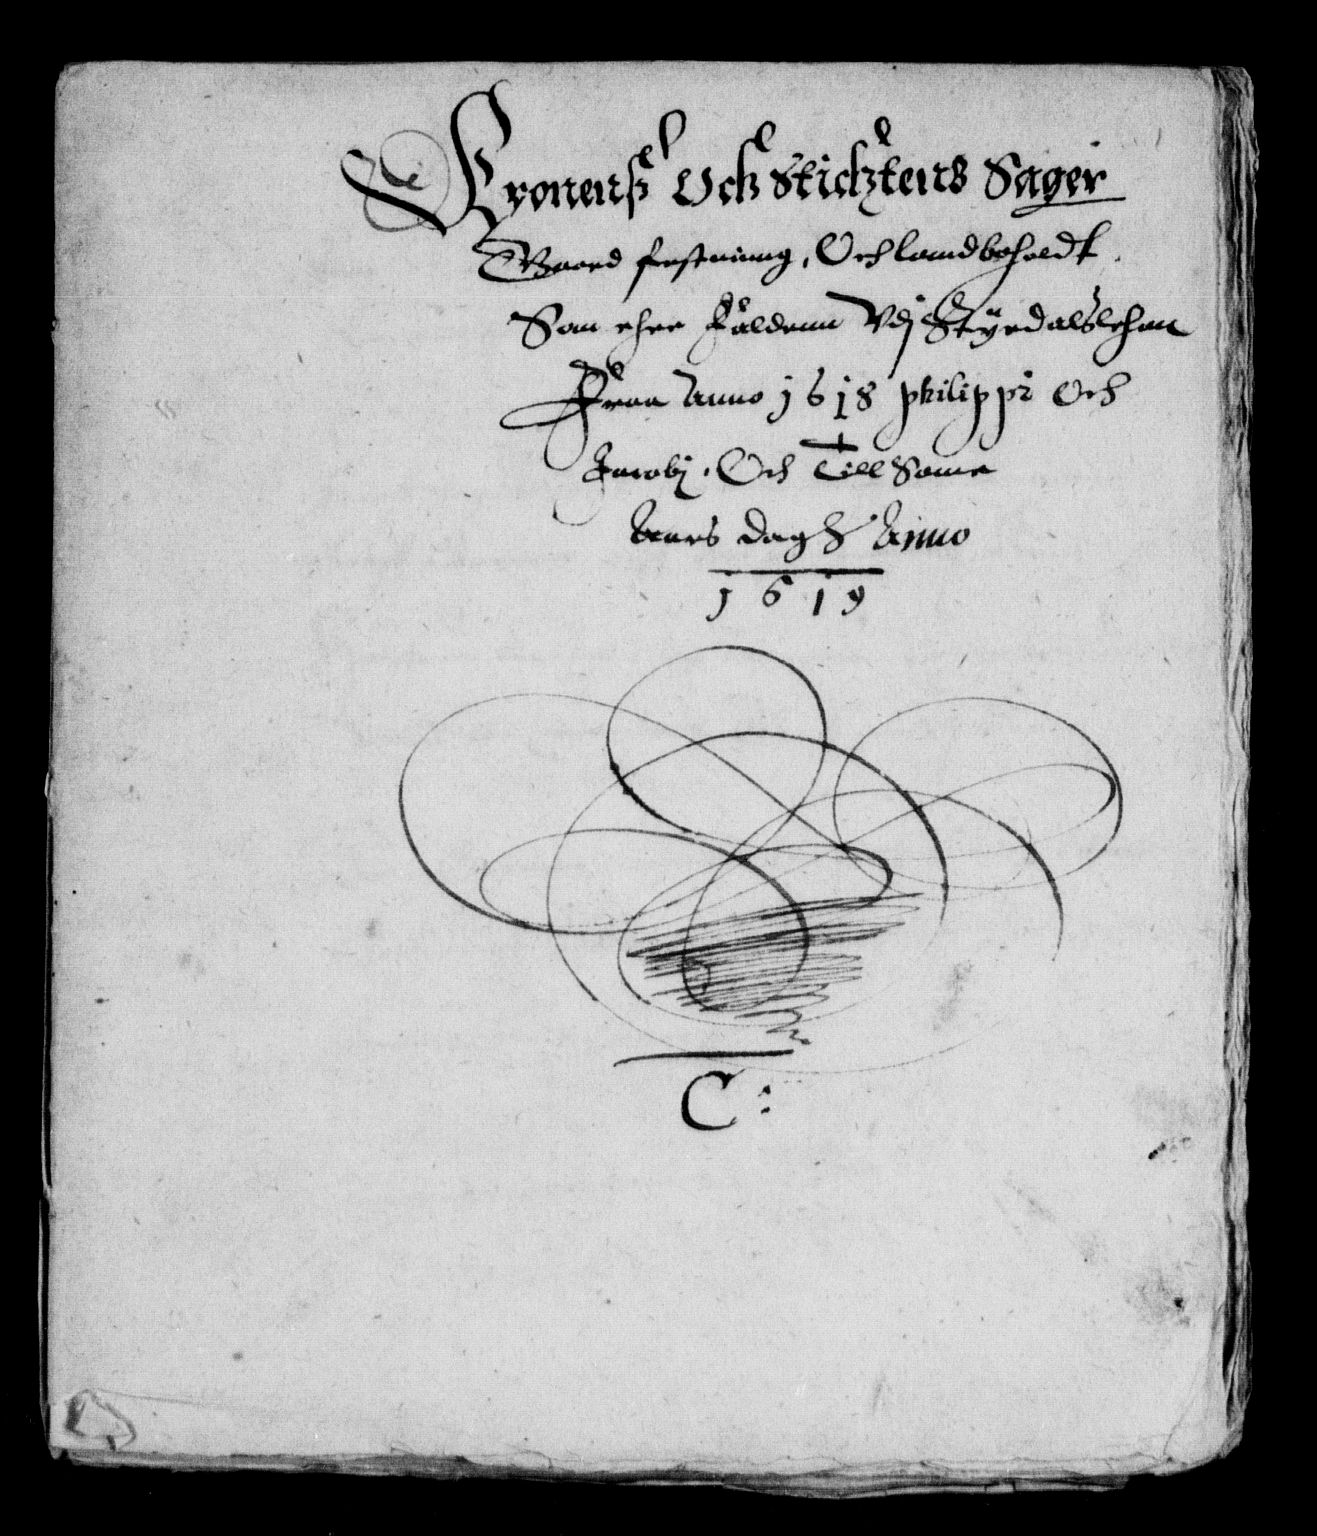 Kronenß Och Stichtens Sager
Gaard festning, Och landboholdt
Som ehre falden Vdj Styrdalslehn
Fraa Anno 1618 philippi Och
Jacobj, Och Till Same
Aars dagh Anno
1619
C: